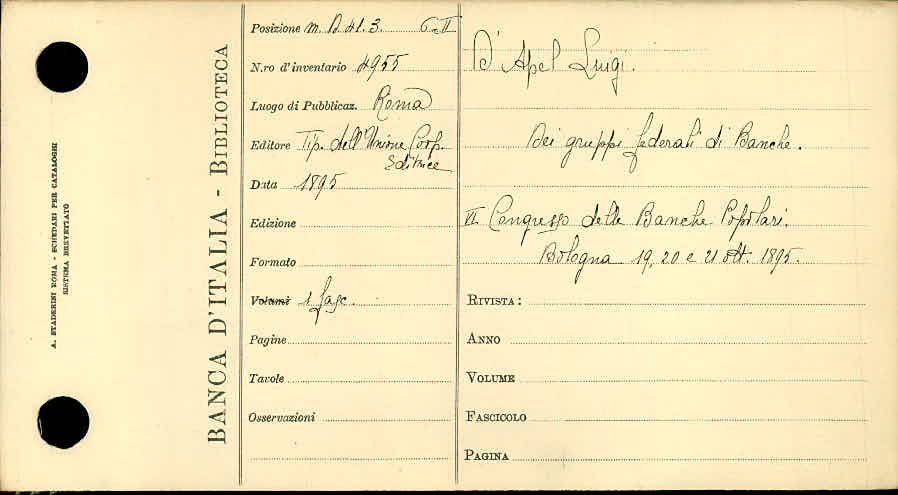 A. STADERINI ROMA - SCHEDARI PER CATALOGHI
SISTEMA BREVETTATO
BANCA D'ITALIA - BIBLIOTECA
Posizione m. B. 41. 3. 6-II
N.ro d'inventario 4955
Luogo di Pubblicaz. Roma
Editore Tip. dell'Unione Coop.
Editrice
Data 1895
Edizione
Formato
Volumi 1 fasc.
Pagine
Tavole
Osservazioni
D'Apel Luigi.
Dei gruppi federali di Banche.
VI. Congresso delle Banche Popolari.
Bologna 19, 20 e 21 ott. 1895.
RIVISTA:
ANNO
VOLUME
FASCICOLO
PAGINA